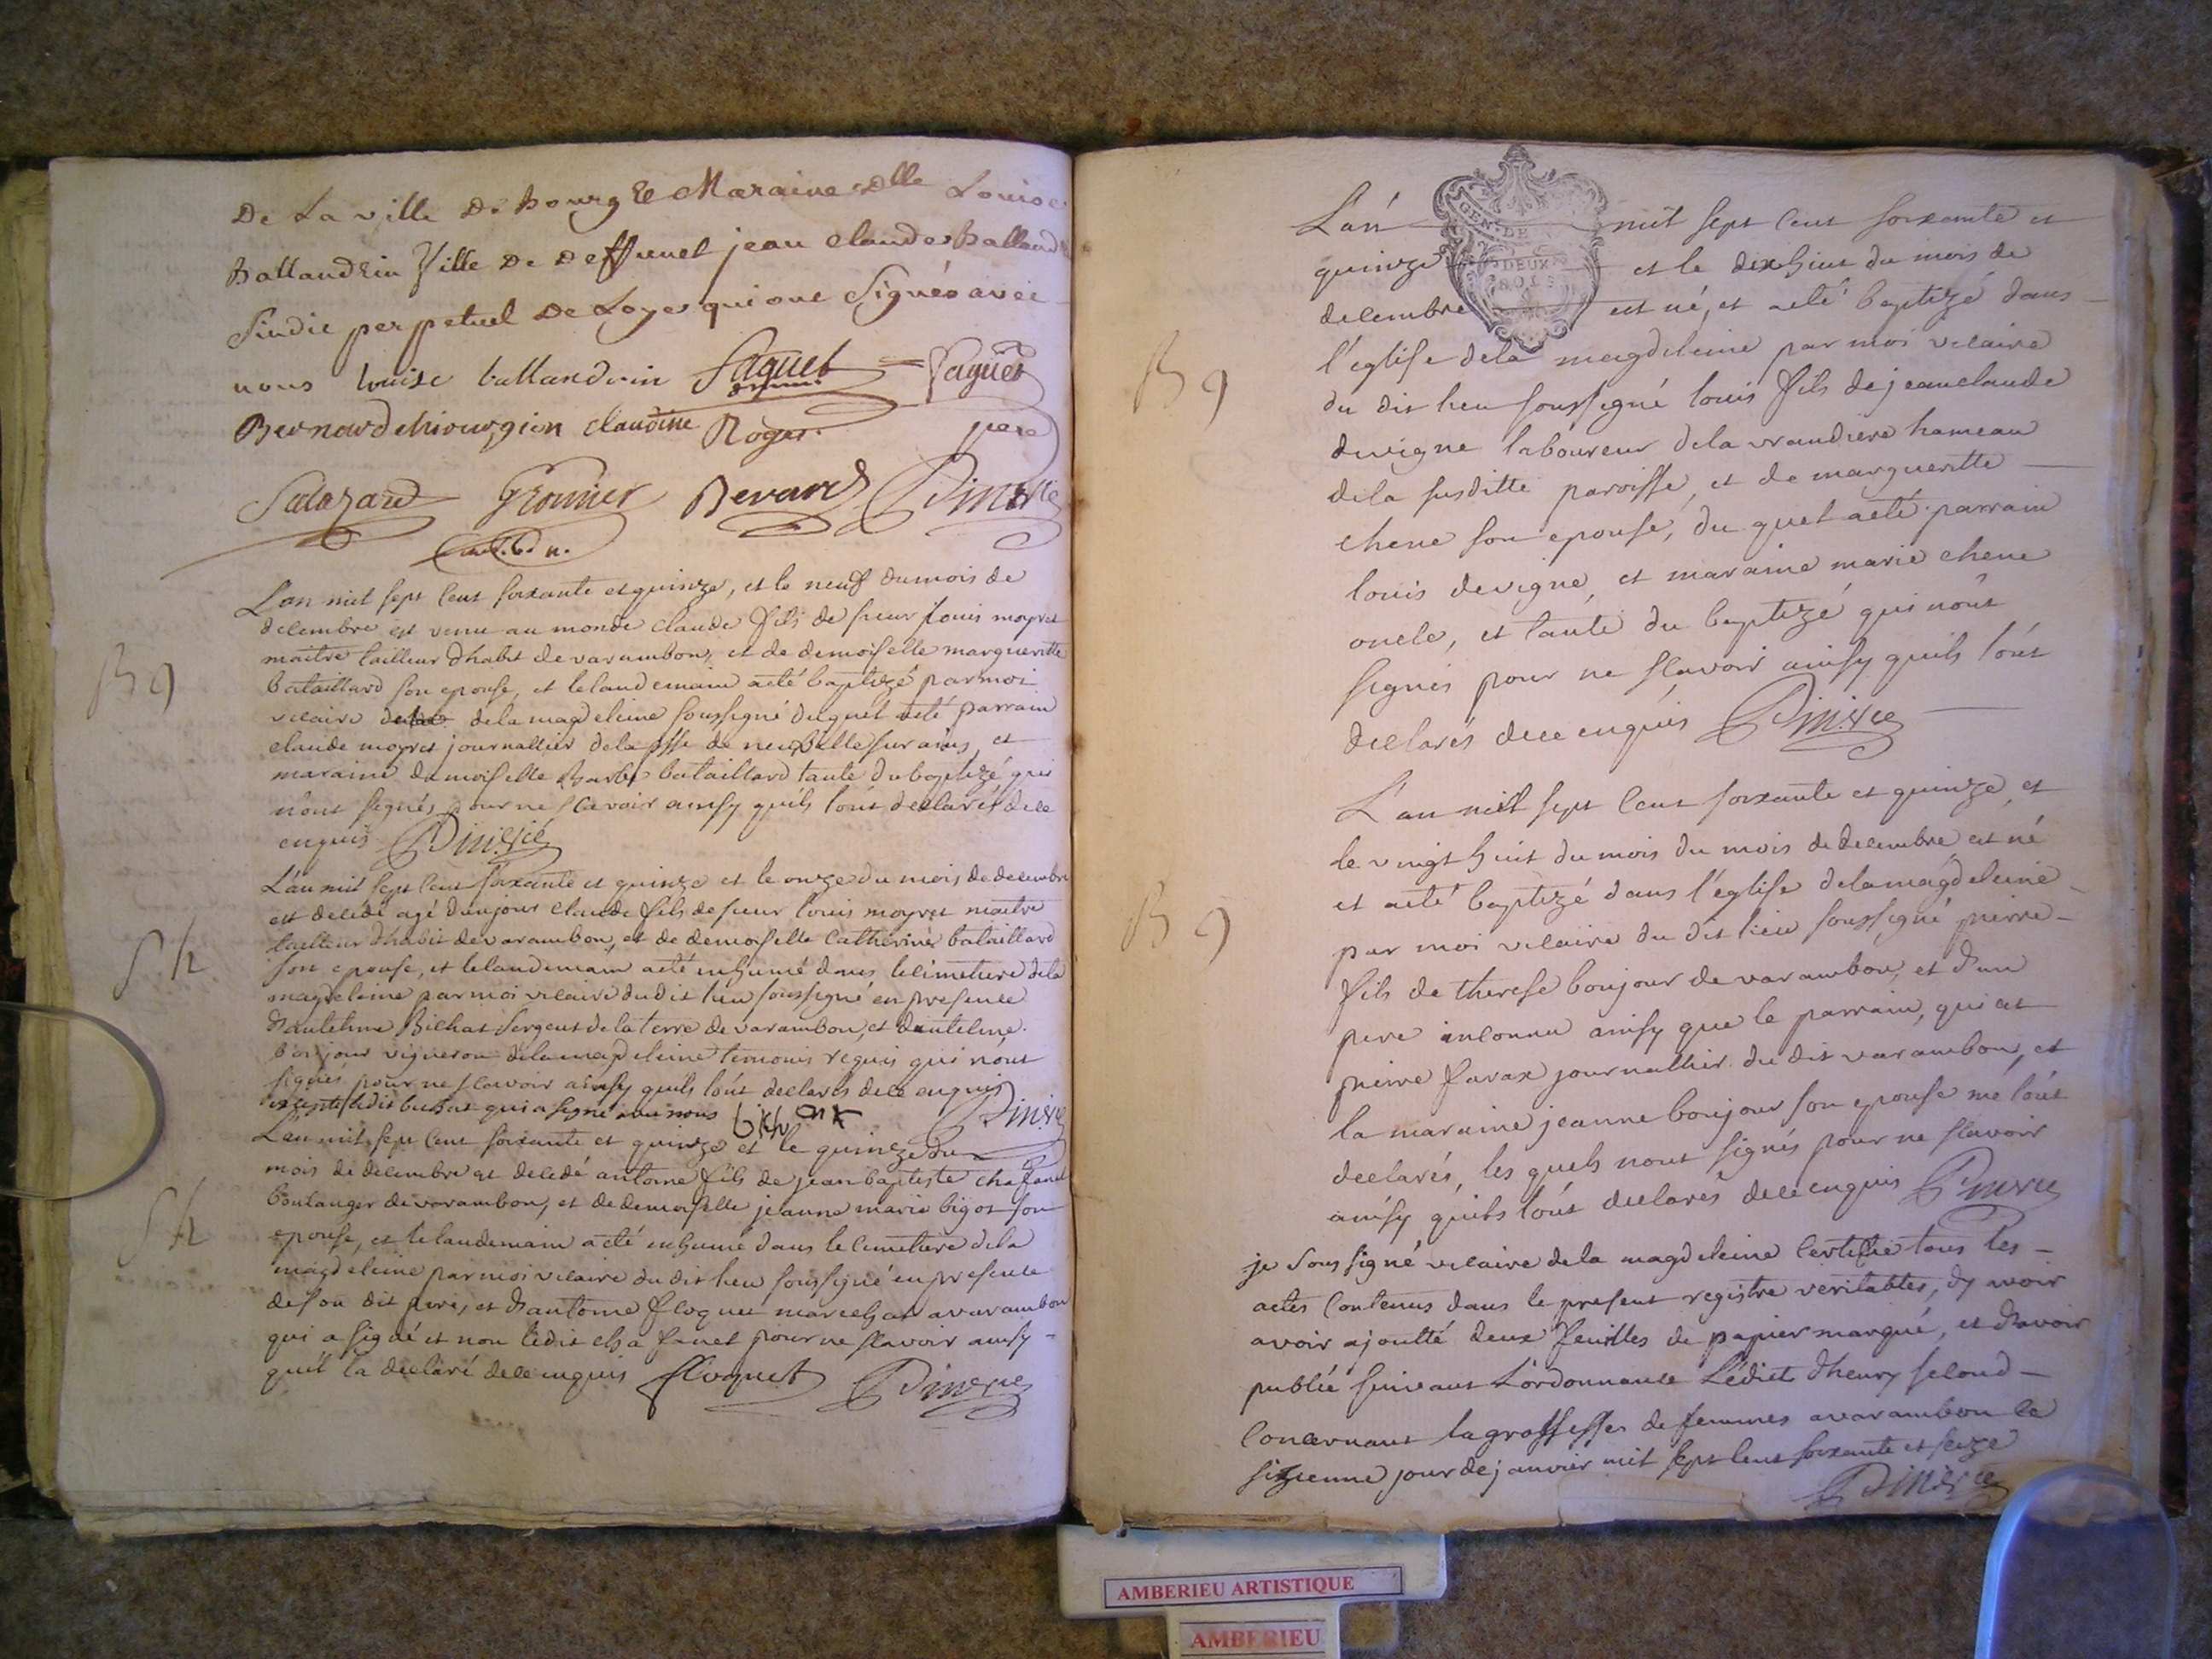 De La ville De bourg & Maraine Dlle Louise
ballandrin fille De Deffunct jean claude balland
sindic perpetuel De Loyes qui ont signés avec
nous louise ballandrin Paguet = Paguet
Bernard chirourgien claudine Roger père
Salazard Gromier Bevard
L'an mil sept cent soixante et quinze, et le neuf du mois de
decembre est venu au monde claude fils de sieur louis moyret
maitre tailleur d'habit de varambon, et de demoiselle margueritte
bataillard son epouse, et le landemain a eté baptizé par moi
vicaire de la magdeleine soussigné du quel a eté parrain
claude moyret journallier de la psse de neufville sur ains, et
maraine demoiselle Barbe bataillard tante du baptizé qui
n'ont signés pour ne scavoir ainsy quils l'ont declarés de ce
enquis
L'an mil sept cent soixante et quinze et le onze du mois de decembre
est decedé agé d'un jour claude fils de sieur louis moyret maitre
tailleur d'habit de varambon, et de demoiselle catherine bataillard
son epouse, et le landemain a eté inhumé dans le cimetiere de la
magdeleine par moi vicaire du dit lieu soussigné en presence
d'antelme Bichat sergent de la terre de varambon, et d'antelme
bonjour vigneron de la magdeleine temoins requis qui n'ont
signés pour ne scavoir ainsy quils l'ont declarés de ce enquis
excepté ledit bichat qui a signé avec nous bichat
L'an mil sept cent soixante et quinze et le quinze du
mois de decembre est decedé antoine fils de jean baptiste chafanet
boulanger de varambon, et de demoiselle jeanne marie bigot son
epouse, et le landemain a eté inhumé dans le cimetiere de la
magdeleine par moi vicaire du dit lieu soussigné en presence
de son dit pere, et d'antoine floquet marechat a varambon
qui a signé et non le dit chafanet pour ne scavoir ainsy
quil la declaré de ce enquis floquet
B 9
S h
S h
GEN. DE
DEUX
SOLS
L'an mil sept cent soixante et
quinze et le dixhuit du mois de
decembre est né, et a eté baptizé dans
l'eglise de la magdeleine par moi vicaire
du dit lieu soussigné louis fils de jean claude
devigne laboureur de la vrandiere hameau
de la susditte paroisse, et de margueritte
chene son epouse, du quel a eté parrain
louis devigne, et maraine marie chene
oncle, et tante du baptizé qui n'ont
signés pour ne scavoir ainsy quils l'ont
declarés de ce enquis
L'an mil sept cent soixante et quinze, et
le vingt huit du mois du mois de decembre est né
et a eté baptizé dans l'eglise de la magdeleine
par moi vicaire du dit lieu soussigné pierre
fils de therese bonjour de varambon, et d'un
pere inconnu ainsy que le parrain, qui est
pierre favax journallier du dit varambon, et
la maraine jeanne bonjour son epouse me l'ont
declarés, les quels n'ont signés pour ne scavoir
ainsy quils l'ont declarés de ce enquis
je soussigné vicaire de la magdeleine certifie tous les
actes contenus dans le present registre veritables, dy avoir
avoir ajoutté deux feuilles de papier marqué, et d'avoir
publié suivant L'ordonnance L'édict d'henry second
concernant la grossesses de femmes a varambon le
sizieme jour de janvier mil sept cent soixante et seize
B 9
B 9
AMBERIEU ARTISTIQUE
AMBERIEU